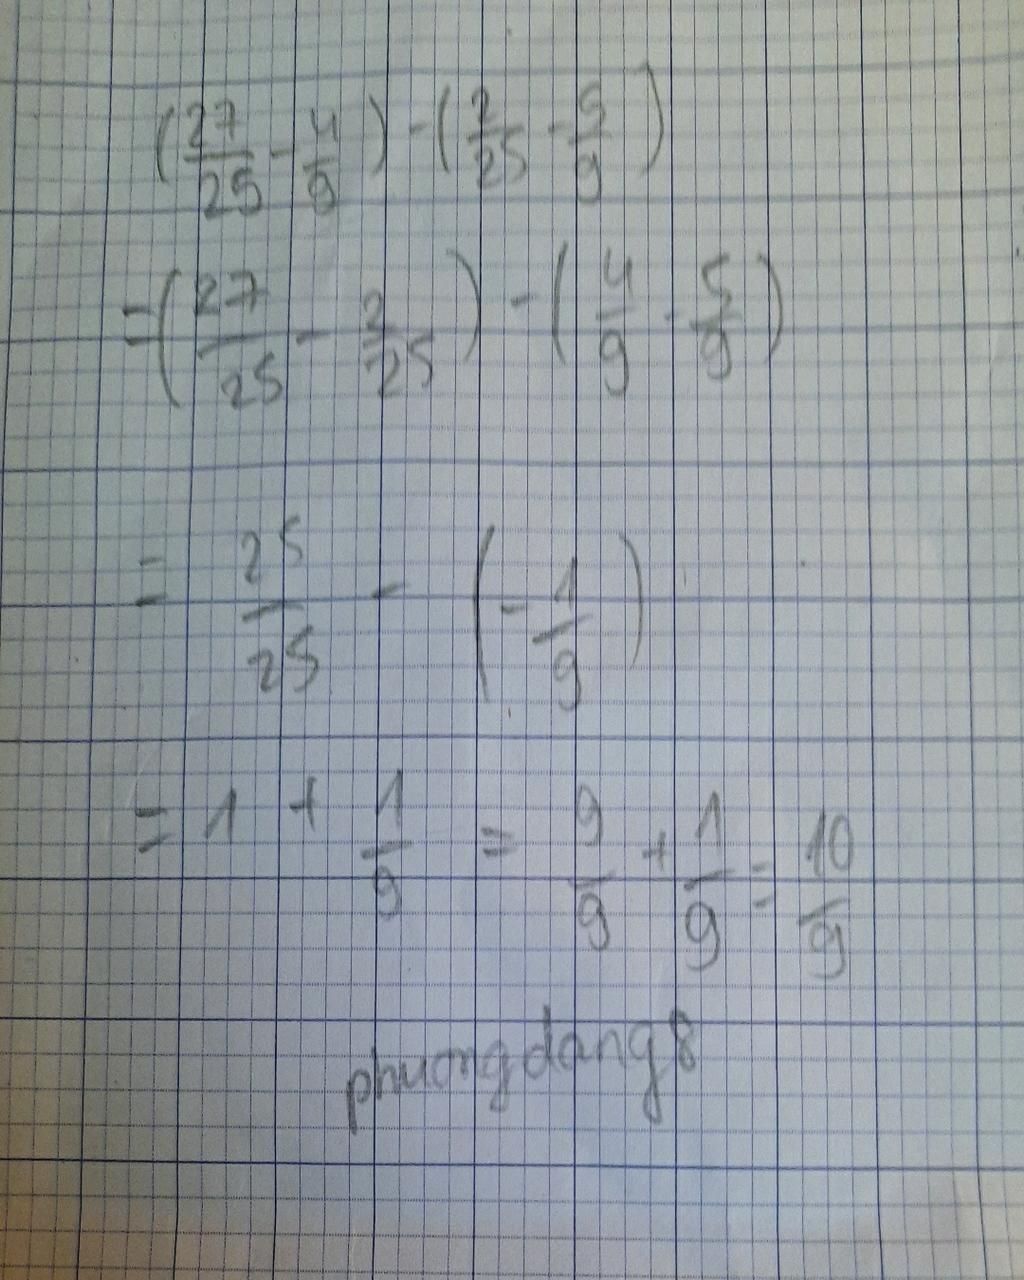 (27/25 - 4/9) - (2/25 - 5/9)
= (27/25 - 2/25) - (4/9 - 5/9)
= 25/25 - (- 1/9)
= 1 + 1/9 = 9/9 + 1/9 = 10/9
phuongdang8